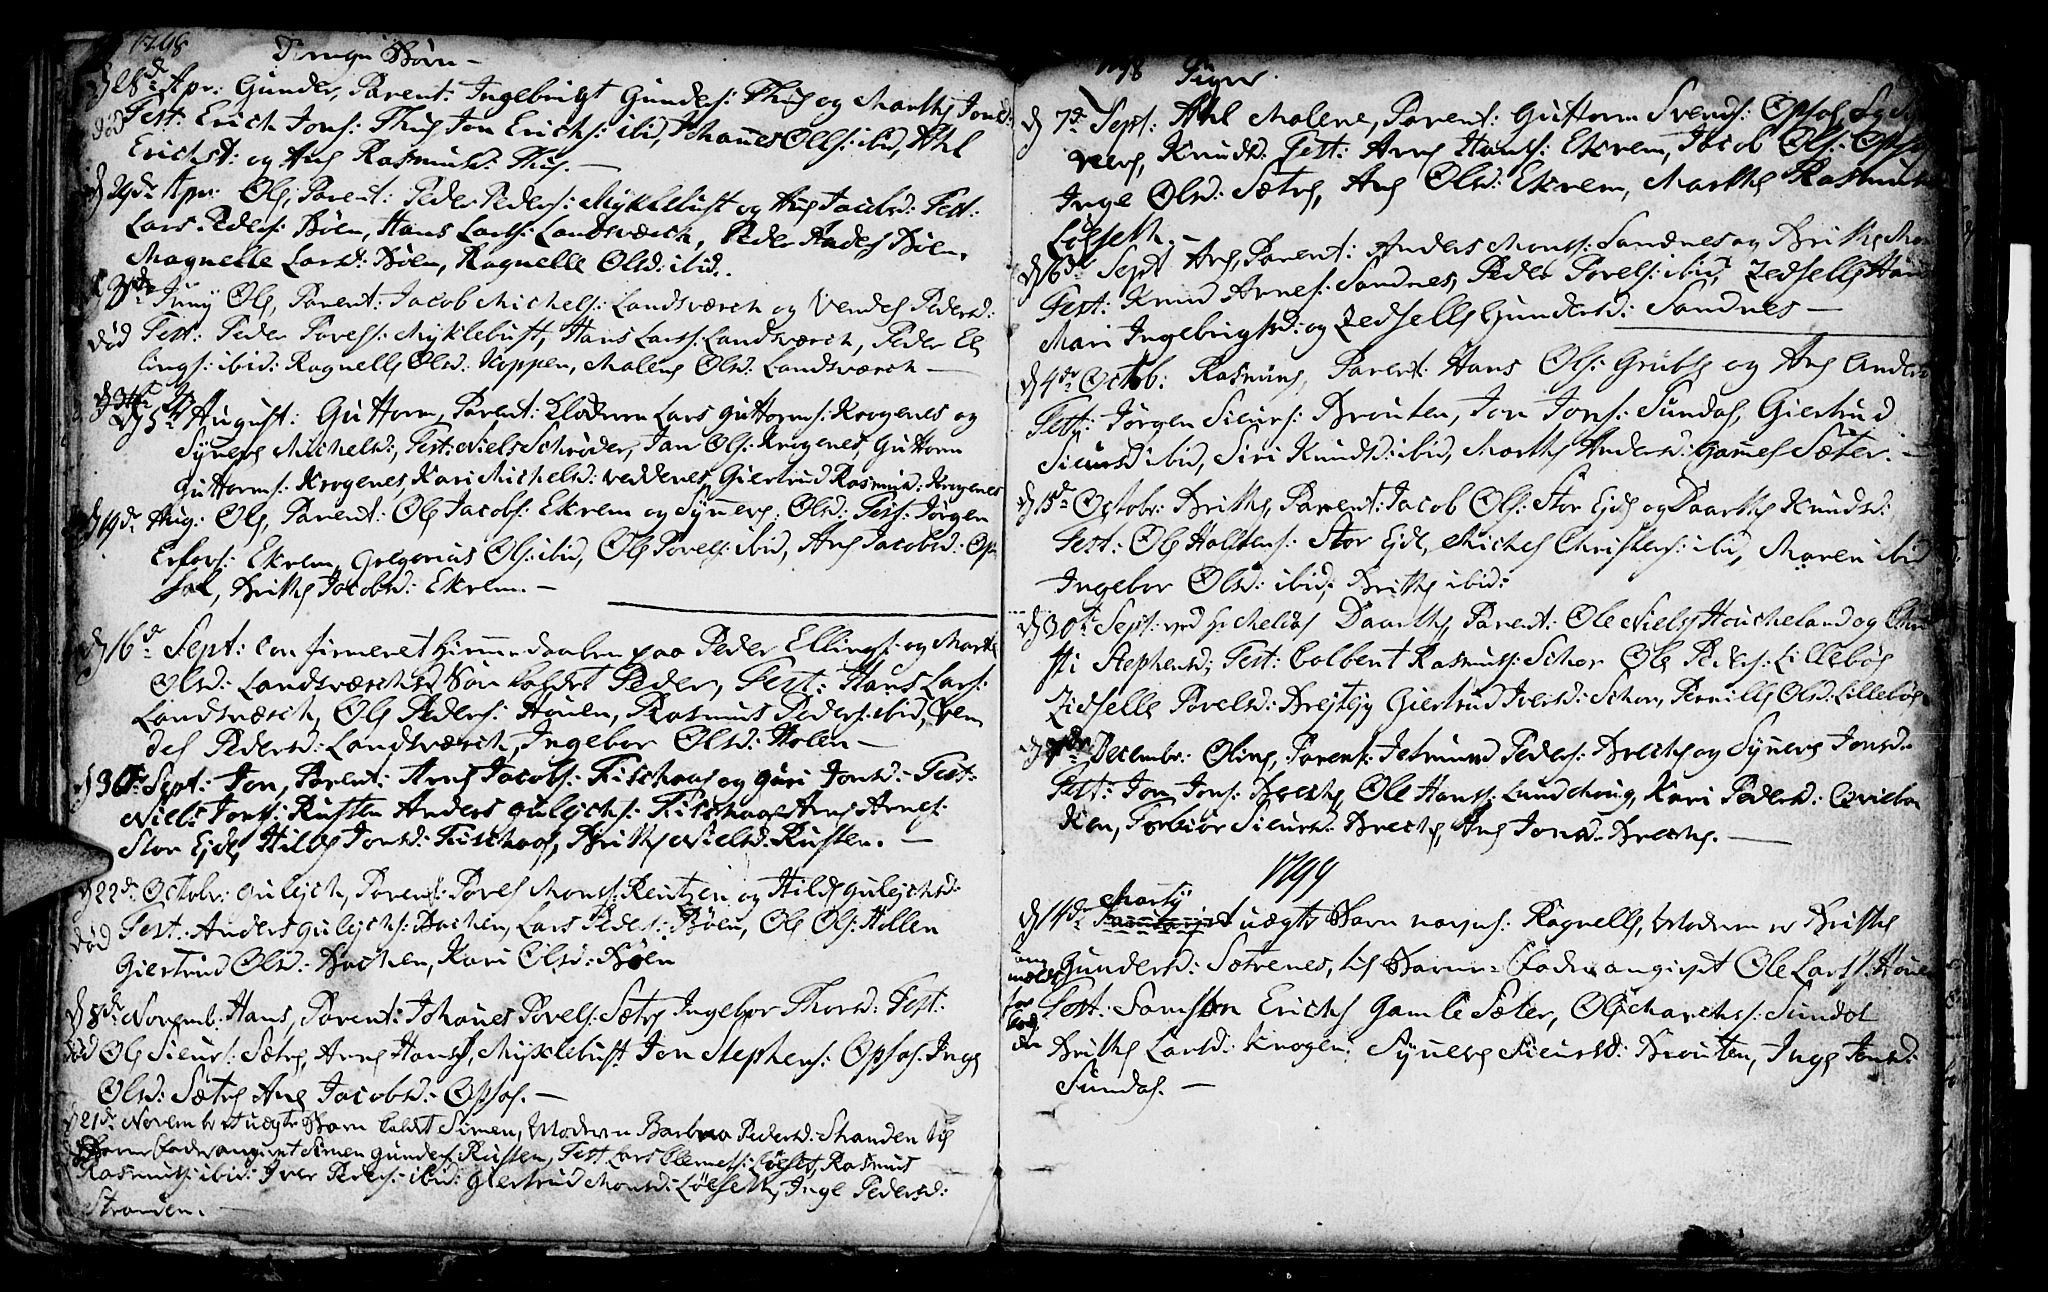 1798 Drenge Børn -
d 28de Apr: Gunder, Parent: Ingebrigt Gunders: Thue og Marthe Jonsd:
død Test: Erich Jons: Thue Jon Erichs: ibid, Johannes Olls: ibid, Ahl
Erichsd: og Ane Rasmusd: Thue. -
d 29de Apr: Ole, Parent: Peder Peders: Myklebust og Ane Jacobsd: Test:
Lars Peders: Böen, Hans Lars: Landsværch, Peder Böen,
Magnelle Larsd: Böen, Ragnelle Olsd: ibid.
Juny Ole, Parent: Jacob Michels: Landsværch og Vendel Pedersd:
død Test: Peder Povels: Myklebust, Hans Lars: Landsværch, Peder El
lings: ibid: Ragnelle Olsd: Koppen, Malene Olsd: Landsværch -
d 5te August: Guttorm, Parent: Klokkeren Lars Guttorms: Krogenes og
Synneve Michelsd:, Test: Niels Schrøder, Jan Ols: Krogenes, Guttorm
Guttorms: Krogenes, Kari Michelsd: Veddenes, Giertrud Rasmusd: Krogenes
d 19de Aug: Ole, Parent: Ole Jacobs: Ekrem og Synneve Olsd: Test: Jørgen
Ekrem, Gregorius Ols: ibid, Ole Povels: ibid, Ane Jacobsd: Op
sal, Brithe Jacobsd: Ekrem. -
d 16de Sept: Confirmeret Hiemmedaaben paa Peder Ellings: og Marte
Olsd: Landsværchs Søn kaldet Peder, Test: Hans Lars:
Landsværch, Ole Peders: Houen, Rasmus Peders: ibid, Ven
del Pedersd: Landsværch, Ingebor Olsd: Holen -
d 30te Sept: Jon, Parent: Arne Jacobs: Fischaas og Guri Jonsd: Test:
Niels Jons: Rusten Anders Gulichs: Fischaas Arne Arnes:
Stor Ejde, Hilde Jonsd: Fischaas, Brithe Nielsd: Rusten. -
d 22de Octobr: Gulich, Parent: Povel Mons: Reutzen og Hilde Gulichsd:
død Test: Anders Gulichs: Bachen, Lars Peders: Böen, Ole Ols: Hollen
Giertrud Olsd: Bachen, Kari Olsd: Böen
d 8de Novemb: Hans, Parent: Johannes Povels: Sætre Ingebor Thorsd: Test:
død Ole Siurs: Sætre, Arne Hans: Myklebust Jon Stephens: Opsal. Inge
Olsd: Sætre Ane Jacobsd: Opsal. -
d 21de Novembr et uægte Barn kaldet Simen, Moderen Barbra Pedersd: Stranden til
Barne Fader angivet Simen Gunders Rusten, Test Lars Clemets: Løeset, Rasmus
Rasmus: ibid: Iver Peders: ibid: Giertrud Monsd: Løeseth, Inge Pedersd:
Stranden. -
1798 Piger
d 7de Sept: Ahl Malene, Parent: Guttorm Svends: Opsal,
Knudsd: Test: Arne Hans: Ekrem, Jacob Ols: Opsal
Inge Olsd: Sætre, Ane Olsd: Ekrem, Marthe Rasmusd
Løeseth. -
d 16de Sept Ane, Parent: Anders Mons: Sandnes og Brithe
Test: Knud Arnes: Sandnes, Peder Povels: ibid, Zedselle
Mari Ingebrigtsd: og Zedselle Gundersd: Sandnes -
d 4de Octob: Rasmus, Parent: Hans Ols: Grube og Ane Andersd
Test: Jørgen Siurs: Brouten, Jon Jons: Sundal, Giertrud
Siursd ibid, Siri Knudsd: ibid, Marthe Andersd: Gamel Sæter. -
d 15de Octobr: Brithe, Parent: Jacob Ols: Stor Ejde og Daarthe Knudsd:
Test: Ole Halstens: Stor Ejde, Michel Christens: ibid, Maren ibid
Ingebor Olsd: ibid, Brithe ibid:
d 30te Sept: ved Hr Daarthe, Parent: Ole Niels Houcheland og Chri
sti Stephensd; Test: Colbent Rasmus: Schor Ole Peders: Lillebøe
Zidselle Povelsd: Giertrud Iversd: Schor, Pernille Olsd: Lillebøe
Decembr: Oline, Parent: Jetmund Peders: Breche og Synneve Jonsd.
Test: Jon Jons: Breche, Ole Hans: Lundehoug, Kari Pedersd:
Torbiør Siursd: Breche, Ane Jonsd. Breche. -
1799
d 14de Marty et uægte Barn navne: Ragnelle, Moderen er Brithe
Gundersd: Sætrenes, til Barne-Fader angivet Ole Lars: Houen
Test: Samson Erichs Gamle Sæter, Ole Sundal
Brithe Larsd: Krogen, Synneve Siursd: Brouten, Inge Jonsd:
Sundal. -